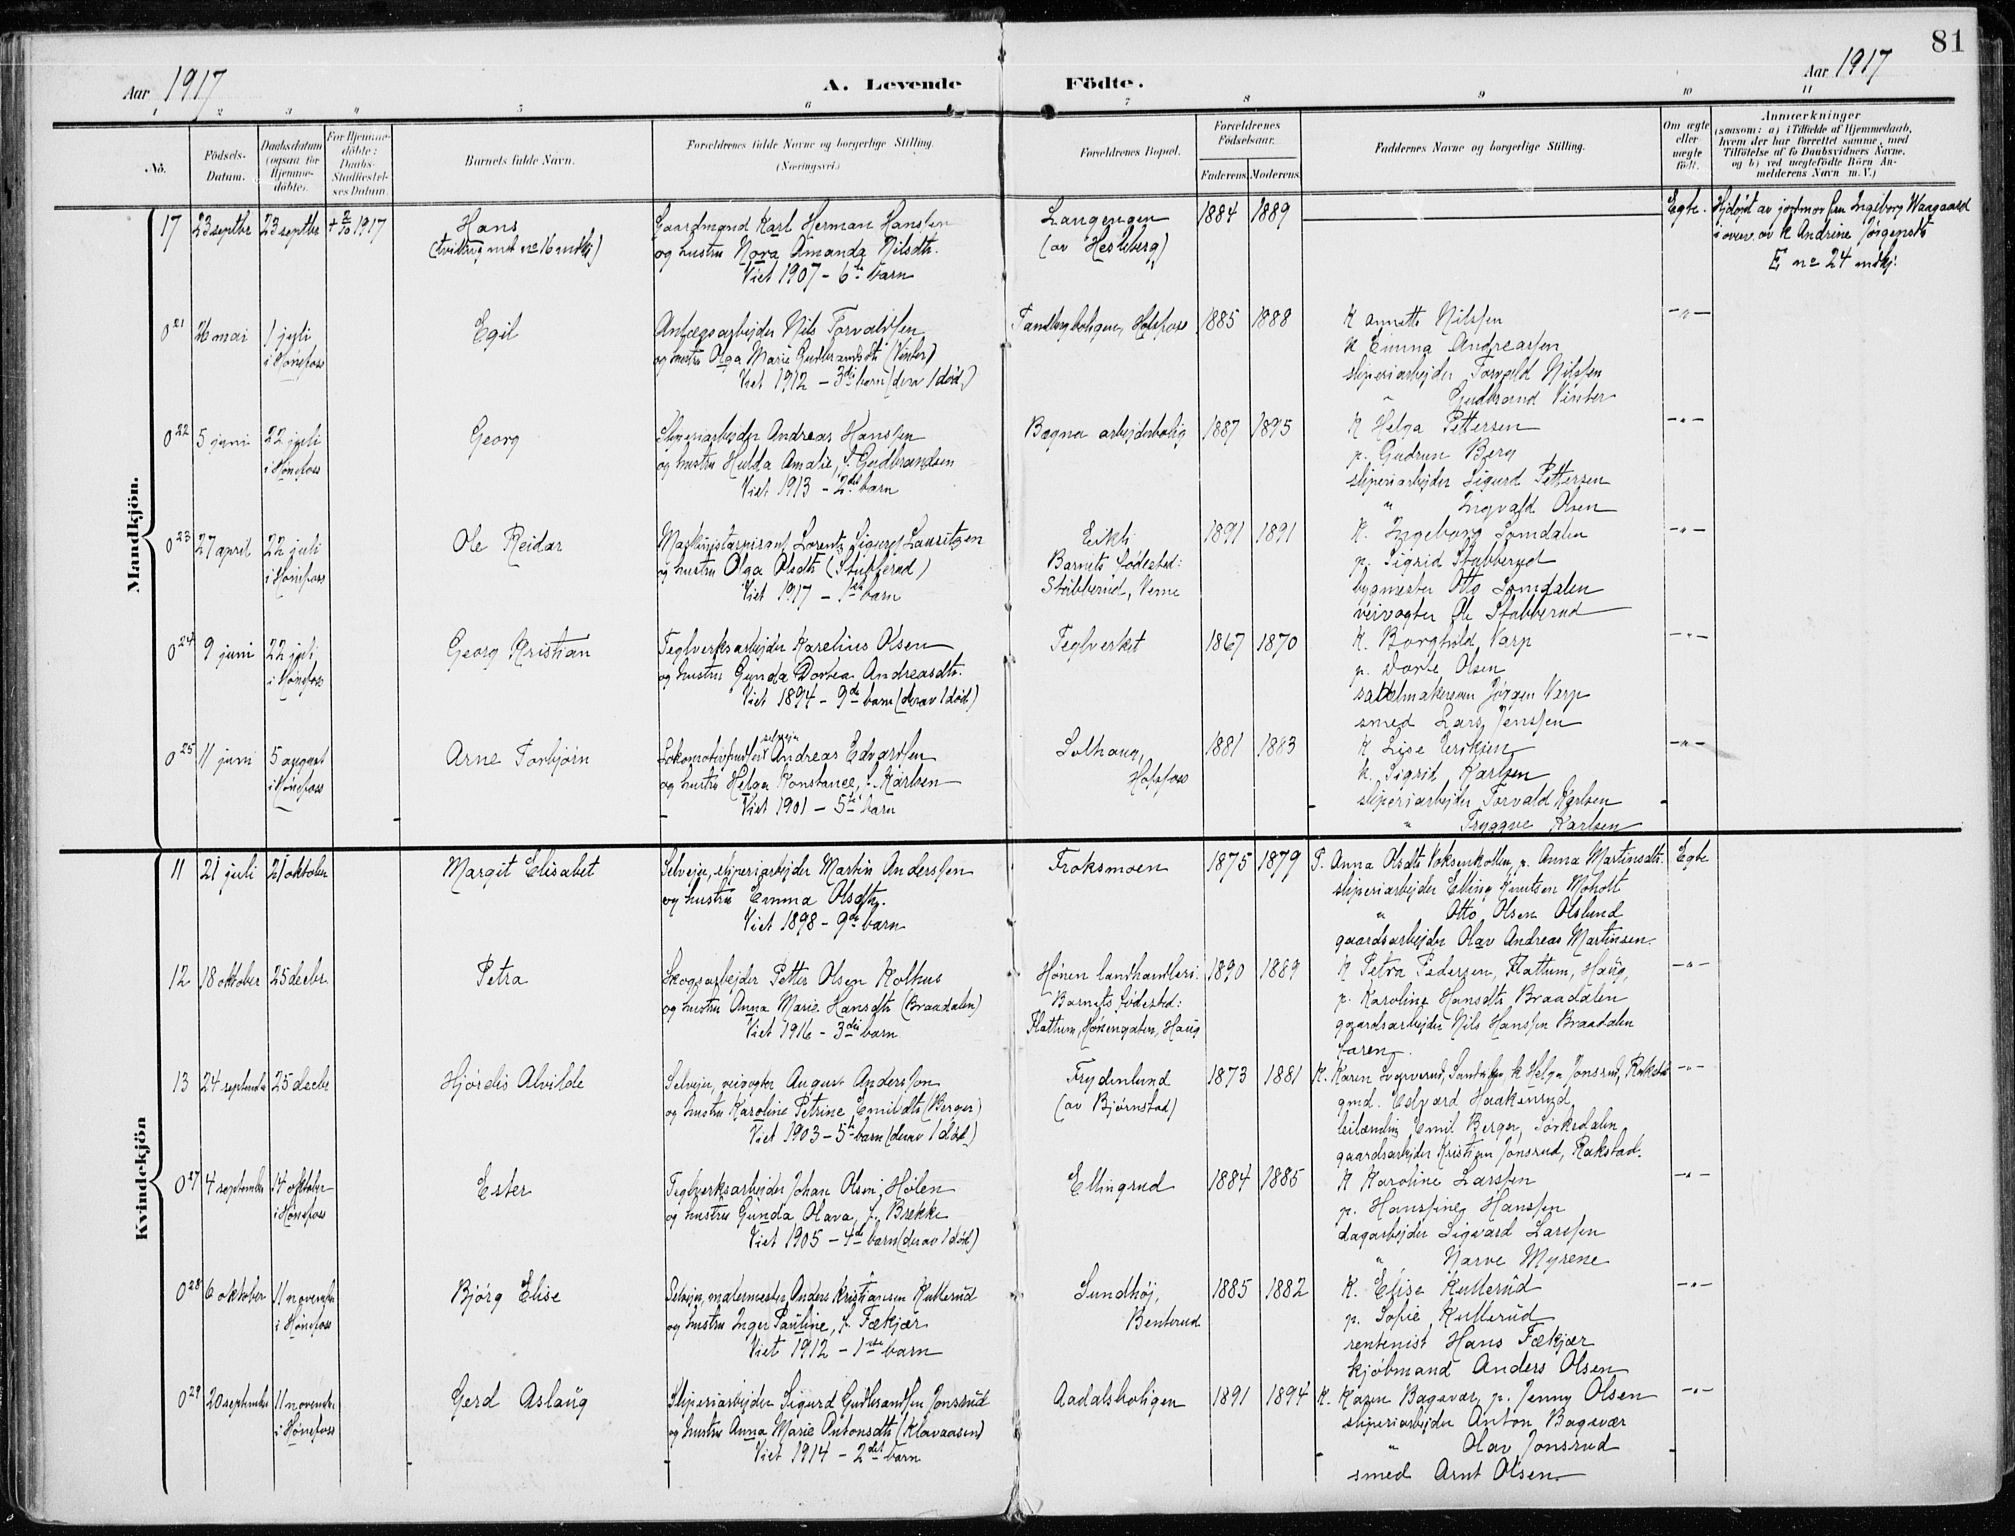 81
Aar 1917
A. Levende Födte.
Aar 1917
1 2 3 4 5 6 7 8 9 10 11
No.
Födsels-Datum.
Daabsdatum (ogsaa for Hjemmedöbte).
For Hjemmedöbte: Daabs-Stadfæstelses Datum.
Barnets fulde Navn.
Forældrenes fulde Navne og borgerlige Stilling. (Næringsvei.)
Forældrenes Bopæl.
Forældrenes Födselsaar.
Faderens. Moderens.
Faddernes Navne og borgerlige Stilling.
Om ægte eller uægte födt.
Anmærkninger
(saasom: a) i Tilfælde af Hjemmedaab, hvem der har forrettet samme, med Tilföielse af to Daabsvidners Navne, og b) ved uegtefödte Börn Anmelderens Navn m. V.)
Mandkjön.
17 23 septbr 23 septbr + 2/10 1917
Hans
(tvilling met no 16 mdkj)
Gaardmand Karl Herman Hanssen
og hustru Nora Amanda Nilsdtr.
Viet 1907 - 6te barn
Langengen
(av Hesleberg)
1884 1889
Egte.
Hjdøbt av jordmor fru Ingeborg Waagaard
i overv. av k Andrine Jørgensdtr
E no 24 mdkj.
021 26 mai 1 juli i Hønefoss
Egil
Anlægsarbejder Nils Torvaldsen
og hustru Olga Marie Gudbrandsdtr (Vinter)
Viet 1912 - 3die barn (derav 1 død.)
Tandbergboligen, Hofsfoss
1885 1888
K Annette Nilssen
k Emma Andreassen
sliperiarbejder Torvald Nilssen
" Gudbrand Vinter
-"-
022 5 juni 22 juli i Hønefoss
Georg
Sliperiarbejder Andreas Hanssen
og hustru Hulda Amalie, f. Gudbrandsen
Viet 1913 - 2det barn
Bægna arbejderbolig
1887 1895
K Helga Pettersen
p. Gudrun Berg
sliperiarbejder Sigurd Pettersen
" Ingvald Olsen
-"-
023 27 april 22 juli i Hønefoss
Ole Reidar
Maskinistaspirant Lorentz Sigurd Lauritzen
og hustru Olga Olsdtr (Stubberud)
Viet 1917 - 1ste barn
Eikli
Barnets fødested:
Stubberud, Veme
1891 1891
K. Ingeborg Somdalen
p. Sigrid Stubberud
bygmester Otto Somdalen
veivogter Ole Stubberud
-"-
024 9 juni 22 juli i Hønefoss
Georg Kristian
Teglverksarbejder Karelius Olsen
og hustru Gunda Dortea Andreasdtr.
Viet 1894 - 9de barn (derav 1 død.)
Teglverket
1867 1870
K. Borghild Varp
p. Dorte Olsen
sadelmakersven Jørgen Varp
smed Lars Jenssen
-"-
025 11 juni 5 august i Hønefoss
Arne Torbjørn
Lokomotivpudser selvejer Andreas Edvardsen
og hustru Helga Konstance, f. Karlsen
Viet 1901 - 5te barn
Solhaug,
Hofsfoss
1881 1883
K Lise Eriksen
k. Sigrid Karlsen
sliperiarbejder Torvald Karlsen
" Tryggve Karlsen
-"-
Kvindekjön
11 21 juli 21 oktober
Margit Elisabet
Selvejer, sliperiarbejder Martin Anderssen
og hustru Emma Olsdtr.
Viet 1898 - 9de barn
Froksmoen
1875 1879
P. Anna Olsdtr Voksenkollen, p. Anna Martinsdtr.
sliperiarbejder Elling Knutsen Moholt
" Otto Olsen Olslund
gaardsarbejder Olav Andreas Martinsen.
Egte
12 18 oktober 25 decbr
Petra
Skogsarbejder Petter Olsen Kolhus
og hustru Anna Marie Hansdtr (Braadalen)
Viet 1916 - 3die barn
Hønen landhandleri.
Barnets fødested:
Flattum, Hønengaten, Haug
1890 1889
K Petra Pedersen, Flattum, Haug,
p. Karoline Hansdtr Braadalen
gaardsarbejder Nils Hanssen Braadalen
faren.
-"-
13 24 septembr 25 decbr
Hjørdis Alvilde
Selvejer, veivogter August Andersson
og hustru Karoline Petrine Emilsdtr (Berger)
Viet 1903 - 5te barn (derav 1 død.)
Frydenlund
(av Bjørnstad)
1873 1881
gmd. Edvard Haakenrud,
leilænding Emil Berger, Sørkedalen
gaardsarbejder Kristian Jonsrud, Rakstad.
-"-
027 4 september 14 oktober i Hønefoss
Ester
Teglverksarbejder Johan Olsen Hølen
og hustru Gunda Olava, f. Brekke
Viet 1905 - 4de barn (derav 1 død.)
Ellingrud
1884 1885
K Karoline Larssen
p. Hanssine Hanssen
dagarbejder Sigvard Larssen
" Narve Myrene
-"-
028 6 oktober 11 november i Hønefoss
Bjørg Elise
Selvejer, malermester Anders Kristiansen Kullerud
og hustru Inger Pauline, f. Fækjær
Viet 1912 - 1ste barn
Sundhøj,
Benterud
1885 1882
K. Elise Kullerud
p. Sofie Kullerud
rentenist Hans Fækjær
kjøbmand Anders Olsen
-"-
029 20 september 11 november i Hønefoss
Gerd Aslaug
Sliperiarbejder Sigurd Gudbrandsen Jonsrud
og hustru Anna Marie Antonsdtr (Klavaasen)
Viet 1914 - 2det barn
Aadalsboligen
1891 1894
K. Karen Bagsvær, p. Jenny Olsen
sliperiarbejder Anton Bagsvær
" Olav Jonsrud
smed Arnt Olsen.
-"-